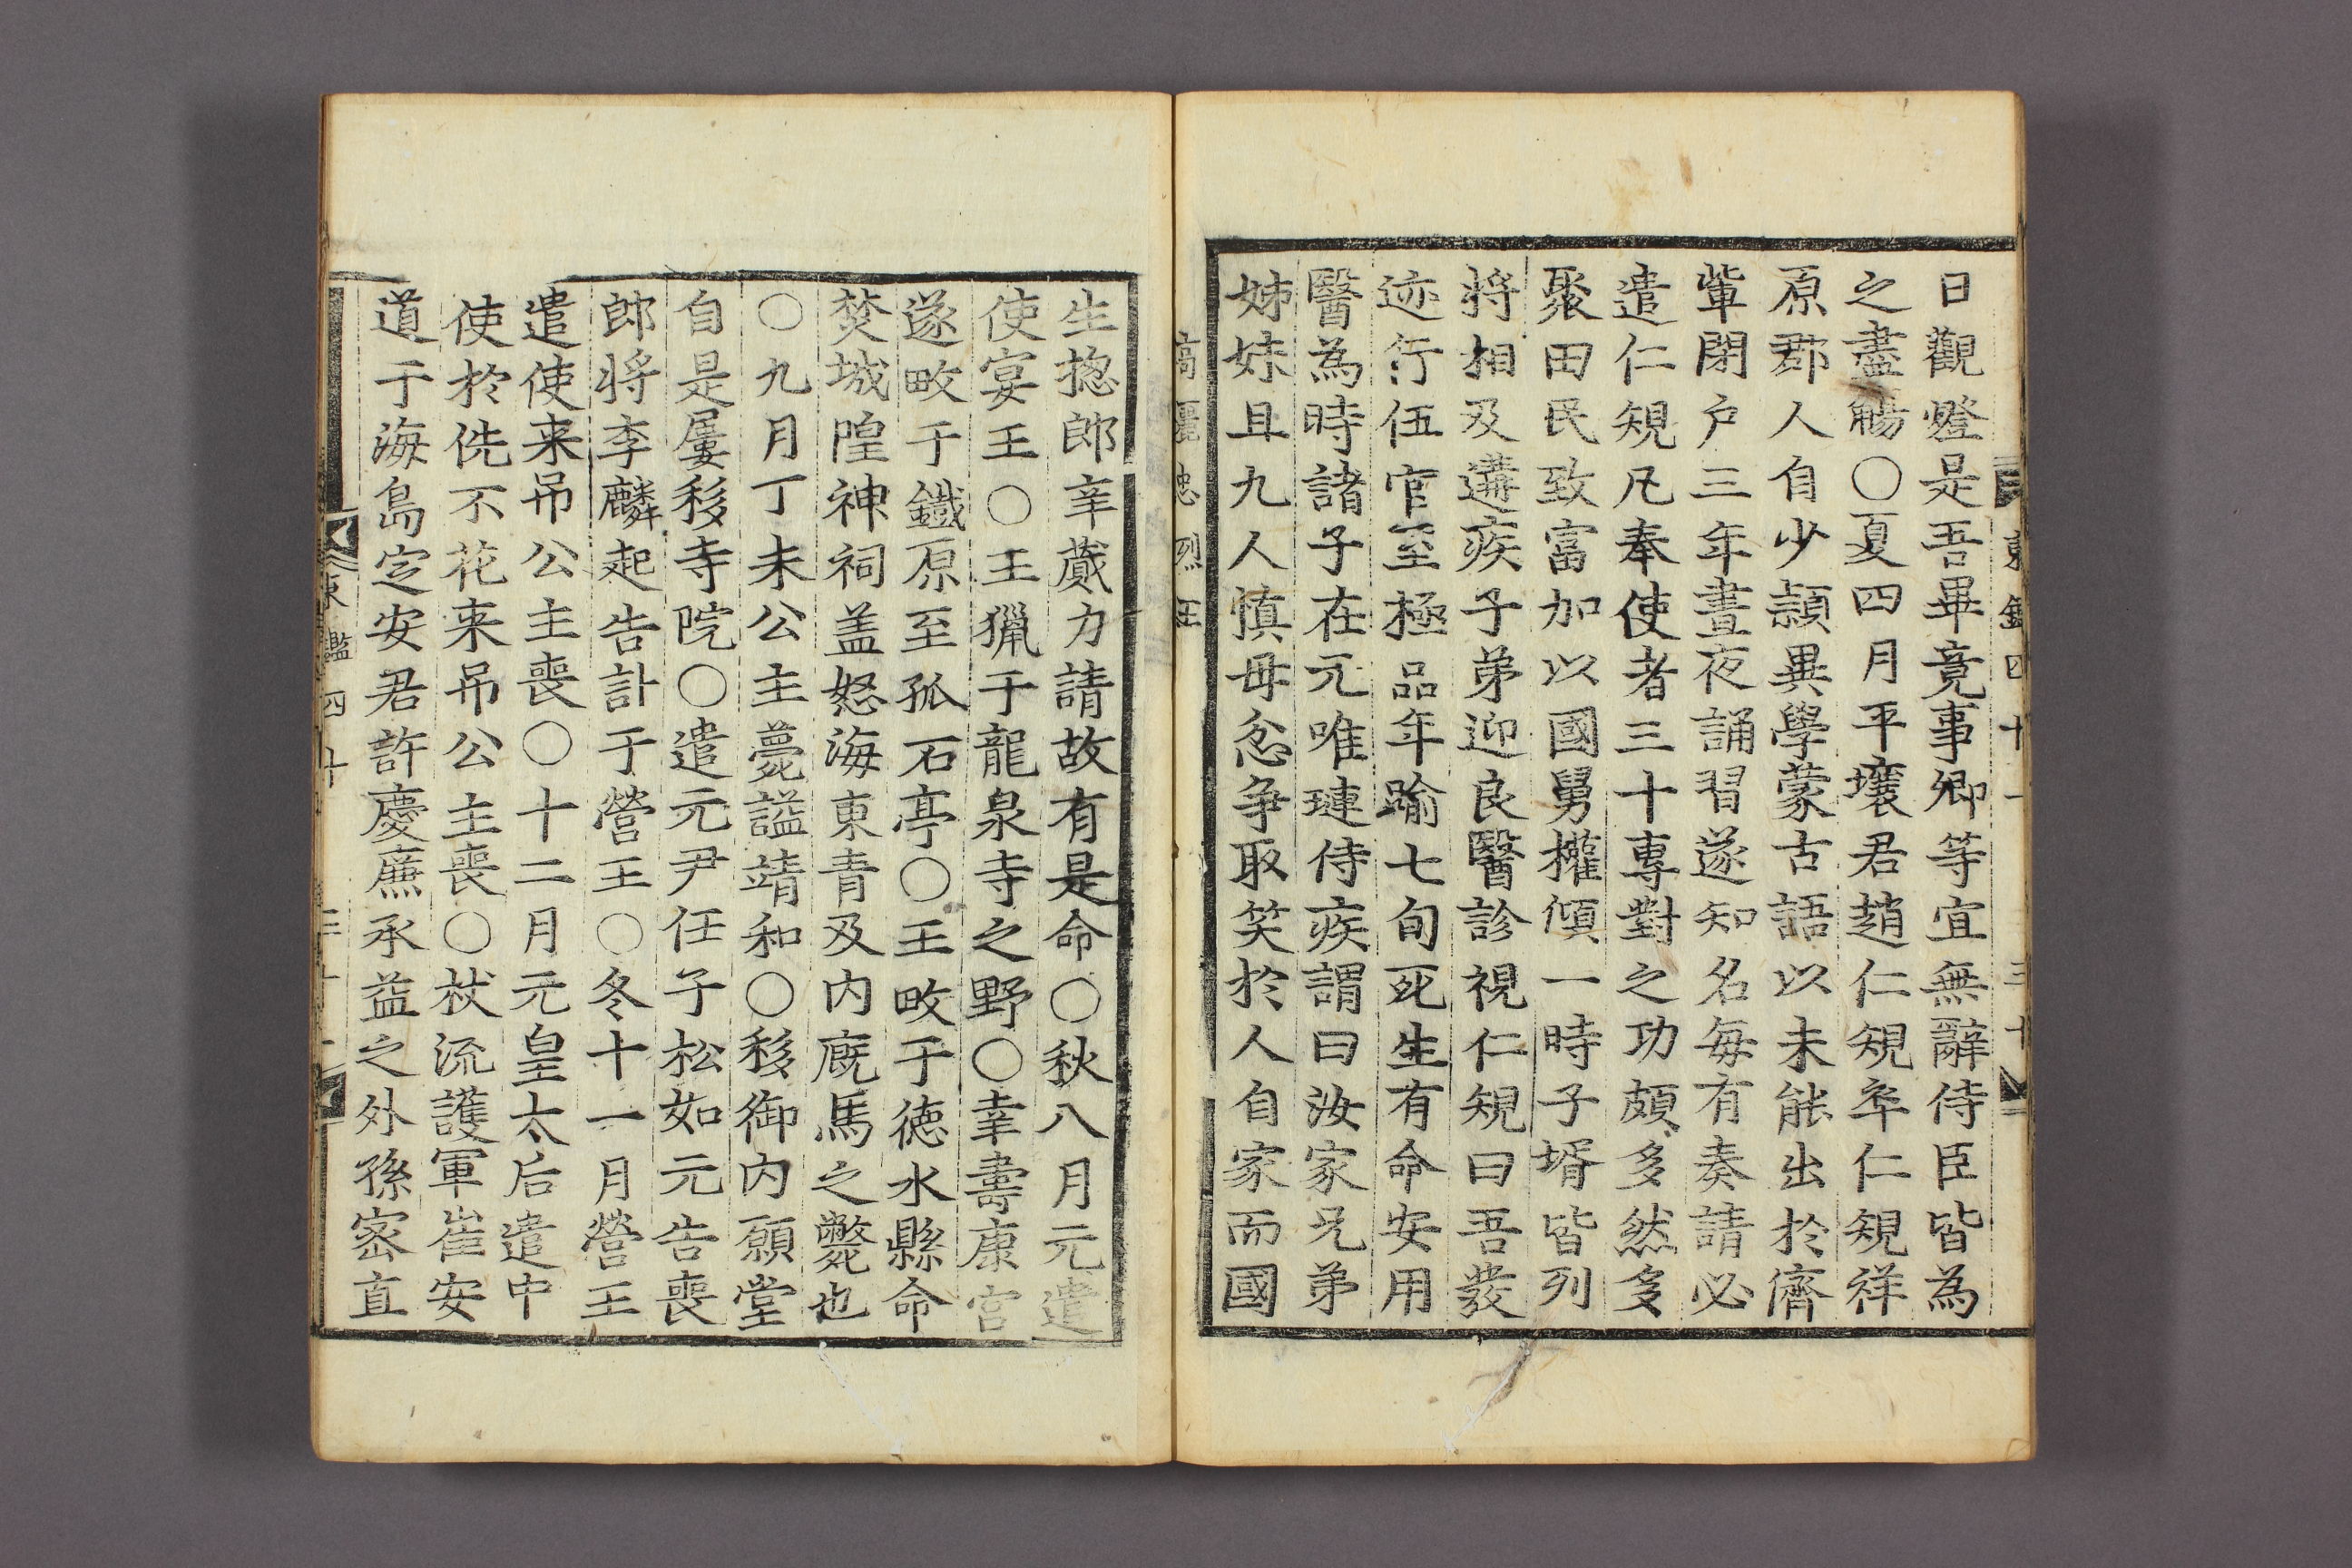 東鑑四十一 三十
日觀燈是吾畢竟事卿等宜無辭侍臣皆為
之盡觴○夏四月平壤君趙仁規卒仁規祥
原郡人自少頴異學蒙古語以未能出於儕
輩閉户三年晝夜誦習遂知名每有奏請必
遣仁規凡奉使者三十專對之功頗多然多
聚田民致富加以國舅權傾一時子壻皆列
將相及遘疾子弟迎良醫診視仁規曰吾發
迹行伍官至極品年踰七旬死生有命安用
醫為時諸子在元唯璉侍疾謂曰汝家兄弟
姊妹且九人慎毋忿爭取笑於人自家而國
高麗忠烈王
生揔郎辛蕆力請故有是命○秋八月元遣
使宴王○王獵于龍泉寺之野○幸壽康宮
遂畋于鐵原至孤石亭○王畋于徳水縣命
焚城隍神祠盖怒海東青及内廐馬之斃也
○九月丁未公主薨謚靖和○移御内願堂
自是屢移寺院○遣元尹任子松如元告喪
郎將李麟起告訃于營王○冬十一月營王
遣使来吊公主喪○十二月元皇太后遣中
使於侁不花来吊公主喪○杖流護軍崔安
道于海島定安君許慶廉承益之外孫密直
東鑑四十